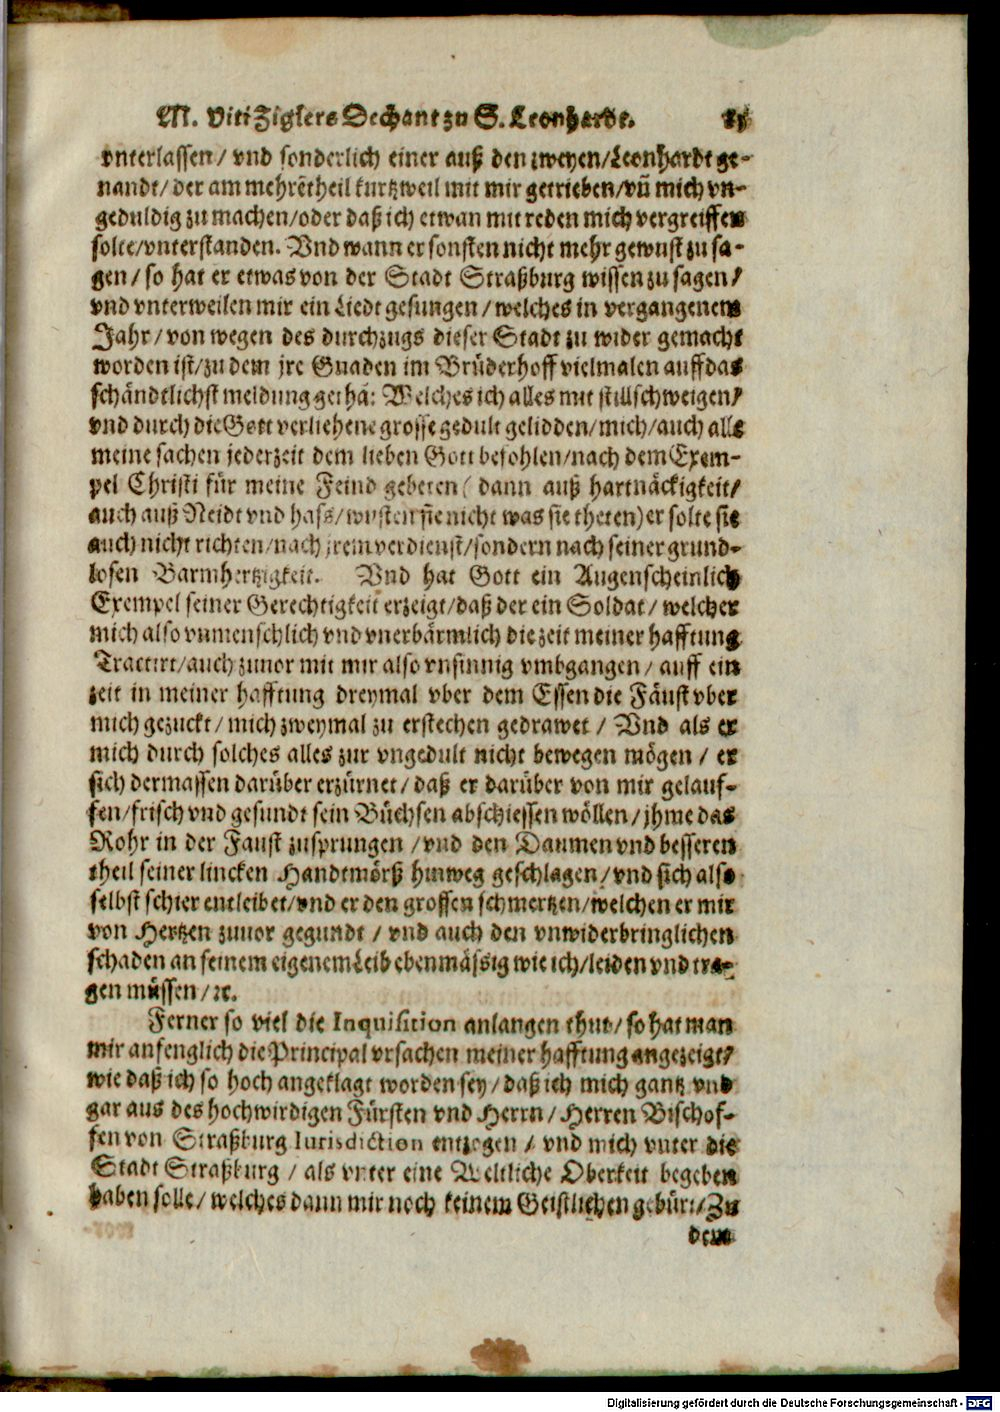 M. Viti Ziglers Dechant zu S. Leonhardt.
vnterlassen / vnd sonderlich einer auß den zweyen / Leonhardt ge-
nandt / der am mehrētheil kurtzweil mit mir getrieben / vñ mich vn-
geduldig zu machen / oder daß ich etwan mit reden mich vergreiffen
solte / vnterstanden. Vnd wann er sonsten nicht mehr gewust zu sa-
gen / so hat er etwas von der Stadt Straßburg wissen zu sagen /
vnd vnterweilen mir ein Liedt gesungen / welches in vergangenem
Jahr / von wegen des durchzugs dieser Stadt zu wider gemacht
worden ist / zu dem jre Gnaden im Brüderhoff vielmalen auff das
schändtlichst meldung gethā: Welches ich alles mit stillschweigen /
vnd durch die Gott verliehene grosse gedult gelidden / mich / auch alle
meine sachen jederzeit dem lieben Gott befohlen / nach dem Exem-
pel Christi für meine Feind gebeten ( dann auß hartnäckigkeit /
auch auß Neidt vnd hass / wusten sie nicht was sie theten) er solte sie
auch nicht richten / nach jrem verdienst / sondern nach seiner grund-
losen Barmhertzigkeit. Vnd hat Gott ein Augenscheinlich
Exempel seiner Gerechtigkeit erzeigt / daß der ein Soldat / welcher
mich also vnmenschlich vnd vnerbärmlich die zeit meiner hafftung
Tractirt / auch zuuor mit mir also vnsinnig vmbgangen / auff ein
zeit in meiner hafftung dreymal vber dem Essen die Fäust vber
mich gezuckt / mich zweymal zu erstechen gedrawet / Vnd als er
mich durch solches alles zur vngedult nicht bewegen mögen / er
sich dermassen darüber erzürnet / daß er darüber von mir gelauf-
fen / frisch vnd gesundt sein Büchsen abschiessen wöllen / jhme das
Rohr in der Faust zusprungen / vnd den Daumen vnd besseren
theil seiner lincken Handtmörß hinweg geschlagen / vnd sich also
selbst schier entleibet / vnd er den grossen schmertzen / welchen er mir
von Hertzen zuuor gegundt / vnd auch den vnwiderbringlichen
schaden an seinem eigenem Leib ebenmässig wie ich / leiden vnd tra-
gen müssen / ꝛc.
Ferner so viel die Inquisition anlangen thut / so hat man
mir anfenglich die Principal vrsachen meiner hafftung angezeigt /
wie daß ich so hoch angeklagt worden sey / daß ich mich gantz vnd
gar aus des hochwirdigen Fürsten vnd Herrn / Herren Bischof-
fen von Straßburg Iurisdiction entzogen / vnd mich vnter die
Stadt Straßburg / als vnter eine Weltliche Oberkeit begeben
haben solle / welches dann mir noch keinem Geistlichen gebürt / Zu
dem
Digitalisierung gefördert durch die Deutsche Forschungsgemeinschaft - DFG